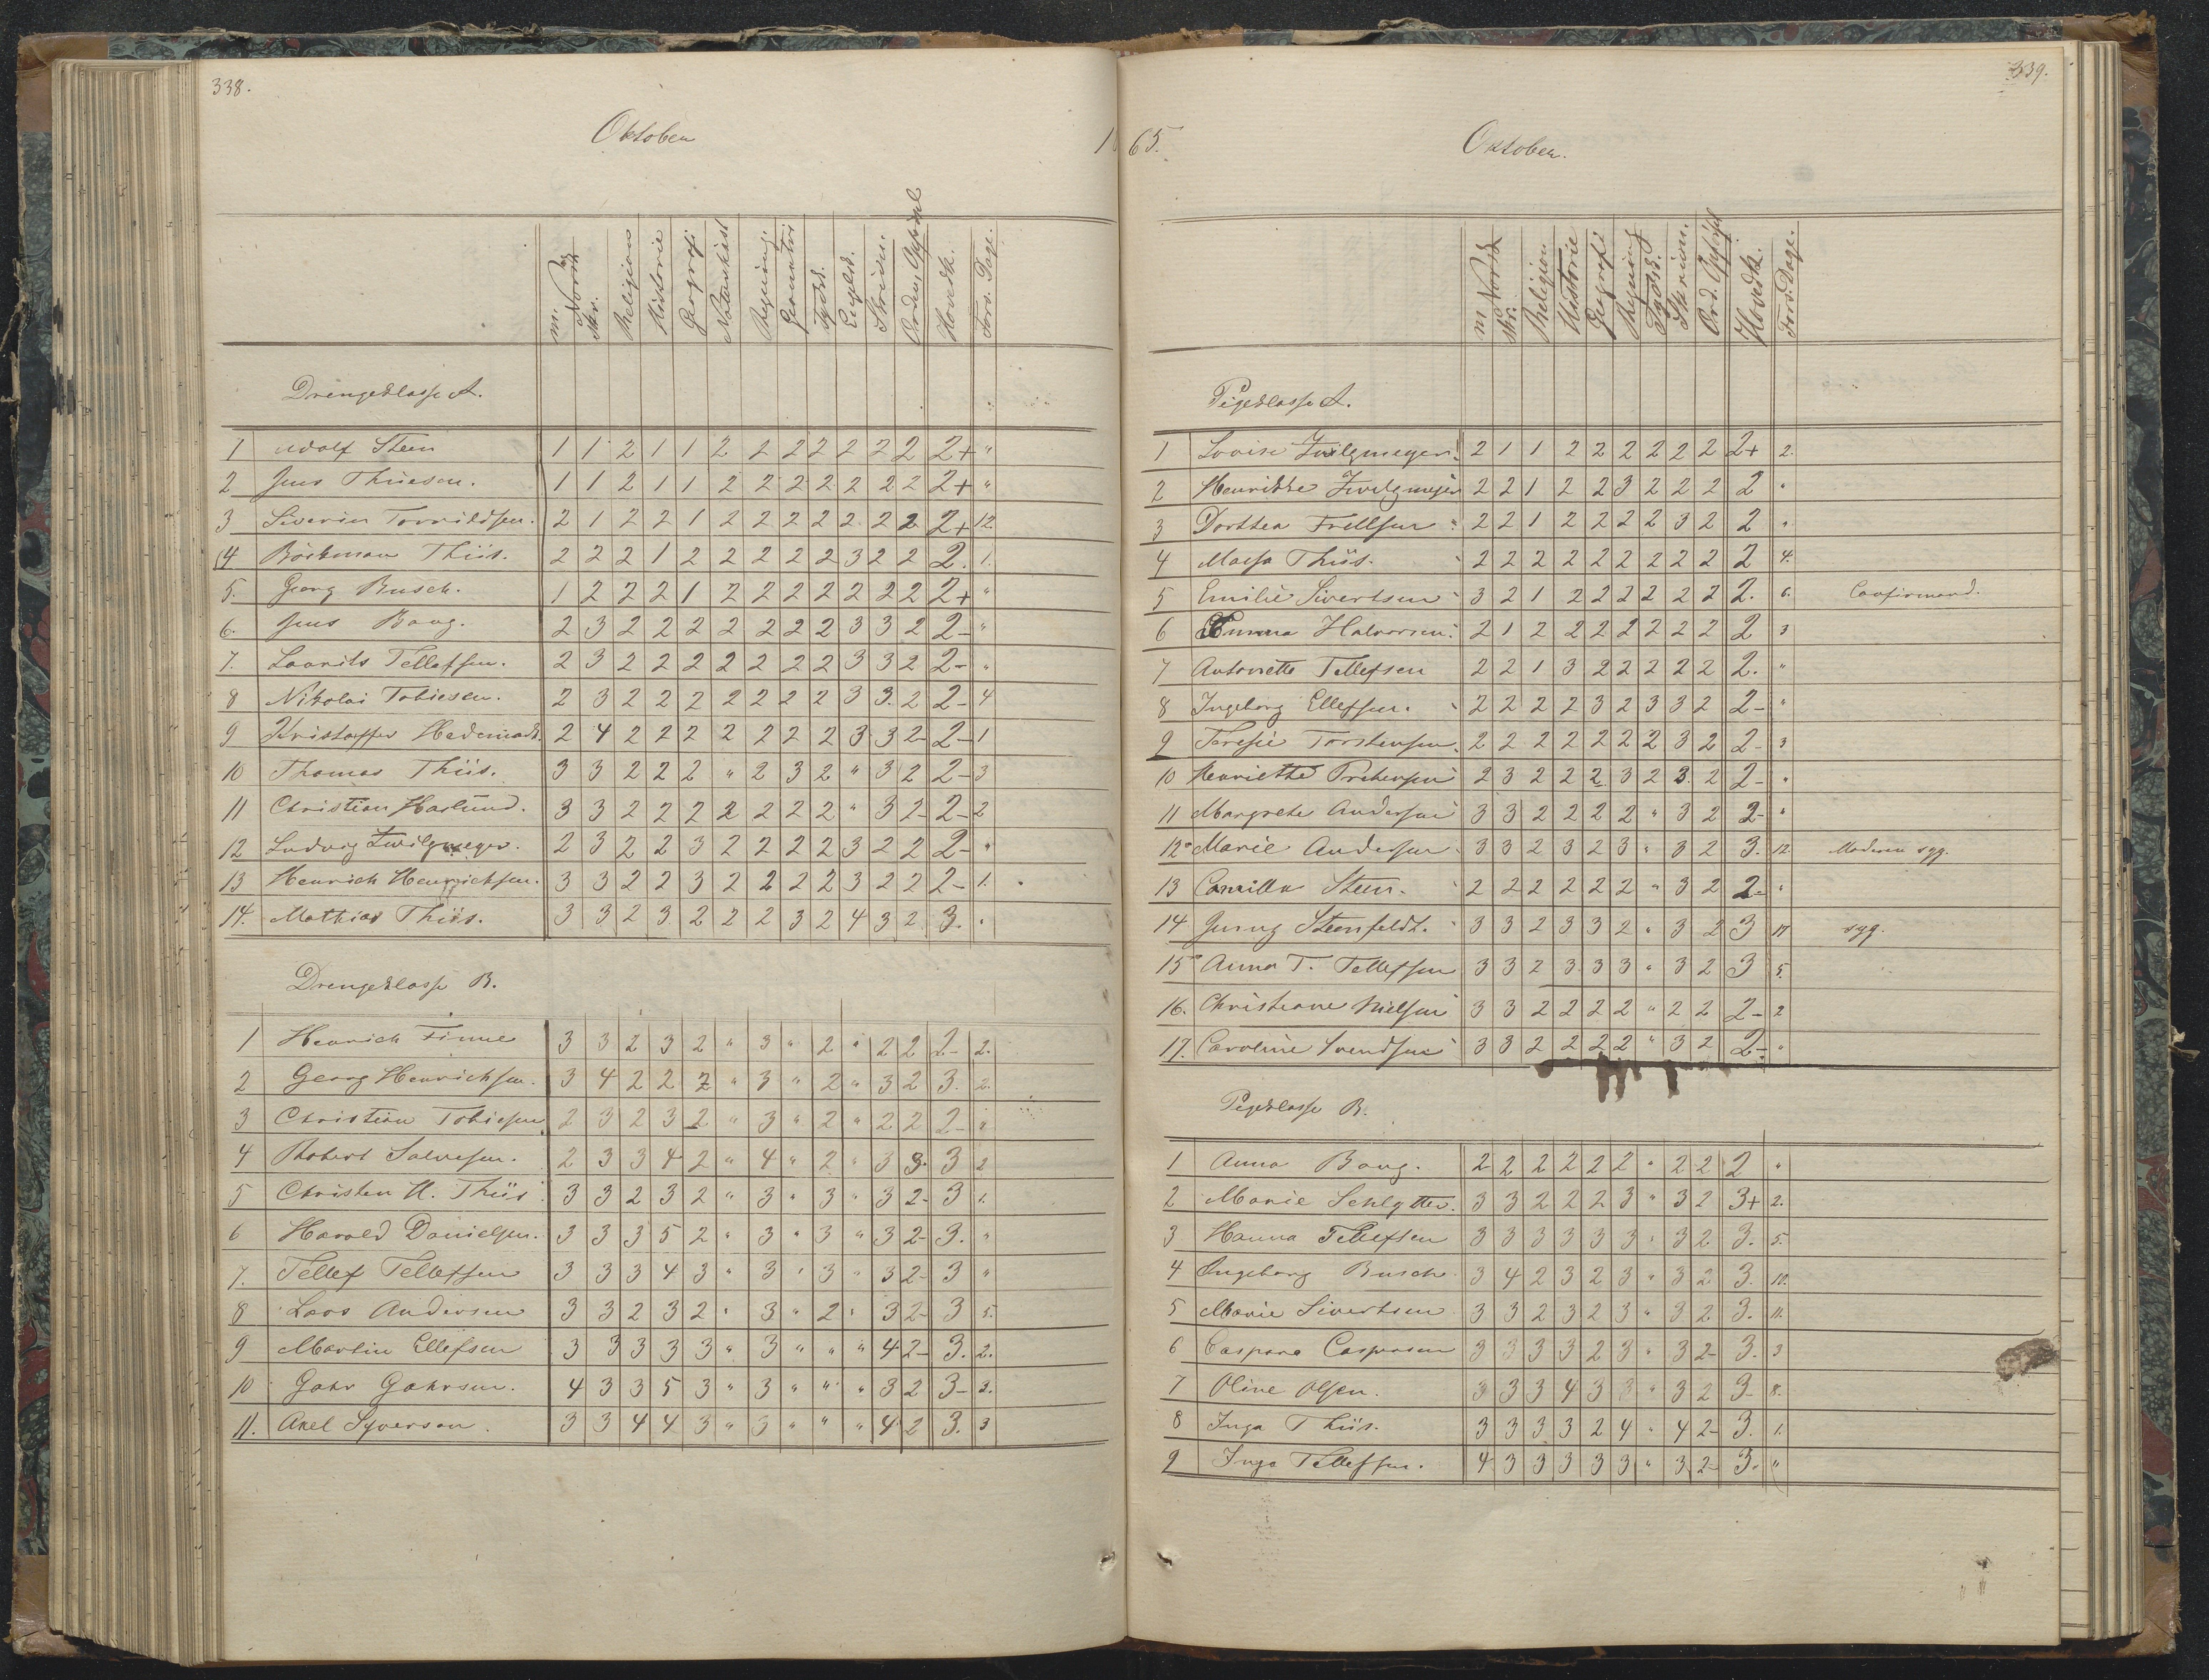 338.
Oktober
1
m. Norsk skr. Religion Historie Geografi Naturhist Regning Geometri Tydsk. Engelsk. Skrivn. Orden, Opførsel Hovedk. Fors. Dage.
Drengeklasse A.
1 Adolf Steen 1 1 2 1 1 2 2 2 2 2 2 2 2+ "
2 Jens Thiiesen. 1 1 2 1 1 2 2 2 2 2 2 2 2+ "
3 Siverin Torvildsen. 2 1 2 2 1 2 2 2 2 2 2 2 2+ 12
4 Böckman Thiis. 2 2 2 1 2 2 2 2 2 3 2 2 2. 1.
5. Georg Busch. 1 2 2 2 1 2 2 2 2 2 2 2 2+ "
6. Jens Bang. 2 3 2 2 2 2 2 2 2 3 3 2 2- "
7. Laurits Tellefsen. 2 3 2 2 2 2 2 2 2 3 3 2 2- "
8 Nikolai Tobiesen. 2 3 2 2 2 2 2 2 2 3 3. 2 2- 4
9 Kristoffer Hedemark. 2 4 2 2 2 2 2 2 2 3 3 2- 2- 1
10 Thomas Thiis. 3 3 2 2 2 " 2 3 2 " 3 2 2- 3
11 Christian Haslund. 3 3 2 2 2 2 2 2 2 " 3 2- 2- 2
12 Ludvig Zwilgmeyer. 2 3 2 2 3 2 2 2 2 3 2 2 2- "
13 Henrich Henrichsen. 3 3 2 2 3 2 2 2 2 3 2 2 2- 1.
14. Mathias Thiis. 3 3 2 3 2 2 2 3 2 4 3 2 3. "
Drengeklasse B.
1 Henrich Finne 3 3 2 3 2 " 3 " 2 " 2 2 2- 2.
2 Georg Henrichsen. 3 4 2 2 2 " 3 " 2 " 3 2 3. 2.
3 Christian Tobiesen 2 3 2 3 2 " 3 " 2 " 2 2 2- "
4 Robert Salvesen. 2 3 3 4 2 " 4 " 2 " 3 3. 3 2
5 Christen H. Thiis 3 3 2 3 2 " 3 " 3 " 3 2- 3 1.
6 Harald Danielsen. 3 3 3 5 2 " 3 " 3 " 3 2- 3. "
7. Tellef Tellefsen 3 3 3 4 3 " 3 " 3 " 3 2- 3 "
8 Lars Andersen 3 3 2 3 2 " 3 " 2 " 3 2- 3 5.
9 Martin Ellefsen 3 3 3 3 3 " 3 " " " 4 2- 3. 2.
10 Gahr Gahrsen. 4 3 3 5 3 " 3 " " " 3 2 3- 2.
11. Axel Syversen. 3 3 4 4 3 " 3 " " " 4 2 3. 3
339.
65.
Oktober.
m Norsk skr. Religion Historie Geografi Regning Tydsk. Skrivn. Ord. Opførsel Hovedk. Fors. Dage.
Pigeklasse A.
1 Lovise Zwilgmeyer. 2 1 1 2 2 2 2 2 2 2+ 2.
2 Henrikke Zwilgmeyer 2 2 1 2 2 3 2 2 2 2 "
3 Dorthea Frellsen 2 2 1 2 2 2 2 3 2 2 "
4 Maesa Thiis. 2 2 2 2 2 2 2 2 2 2 4.
5 Emilie Sivertsen 3 2 1 2 2 2 2 2 2 2. 6. Confirmand.
6 Emma Halvorsen. 2 1 2 2 2 2 2 2 2 2 3
7 Antonette Tellefsen 2 2 1 3 2 2 2 2 2 2. "
8 Ingeborg Ellefsen. 2 2 2 2 3 2 3 3 2 2- "
9 Teresie Torstensen. 2 2 2 2 2 2 2 3 2 2- 3
10 Henriette 2 3 2 2 2 3 2 3. 2 2- "
11 Margrete Andersen 3 3 2 2 2 2 " 3 2 2- "
12 Marie Andersen 3 3 2 3 2 3 " 3 2 3. 12 Moderen syg.
13 Camilla Steen. 2 2 2 2 2 2 " 3 2 2- "
14 Jenny Steenfeldt. 3 3 2 3 3 2 " 3 2 3 17 syg.
15 Anna T. Tellefsen 3 3 2 3 3 3 " 3 2 3 5.
16. Christiane Nielsen 3 3 2 2 2 2 " 2 2 2- 2
17. Caroline Svendsen 3 3 2 2 2 2 " 3 2 2- "
Pigeklasse B.
1 Anna Bang. 2 2 2 2 2 2 " 2 2 2 "
2 Marie Schlytter. 3 3 2 2 2 3 " 3 2 3+ 2.
3 Hanna Tellefsen 3 3 3 3 3 3 " 3 2 3. 5.
4 Ingeborg Busch 3 4 2 3 2 3 " 3 2 3. 10.
5 Marie Sivertsen 3 3 2 3 2 3 " 3 2 3. 11.
6 Caspara Caspersen 3 3 3 3 2 3 " 3 2- 3. 3
7 Oline Olsen. 3 3 3 4 3 3 " 3 2 3- 8.
8 Inga Thiis. 3 3 3 3 2 4 " 4 2- 3. 1.
9 Inga Tellefsen. 4 3 3 3 3 3 " 3 2- 3. "